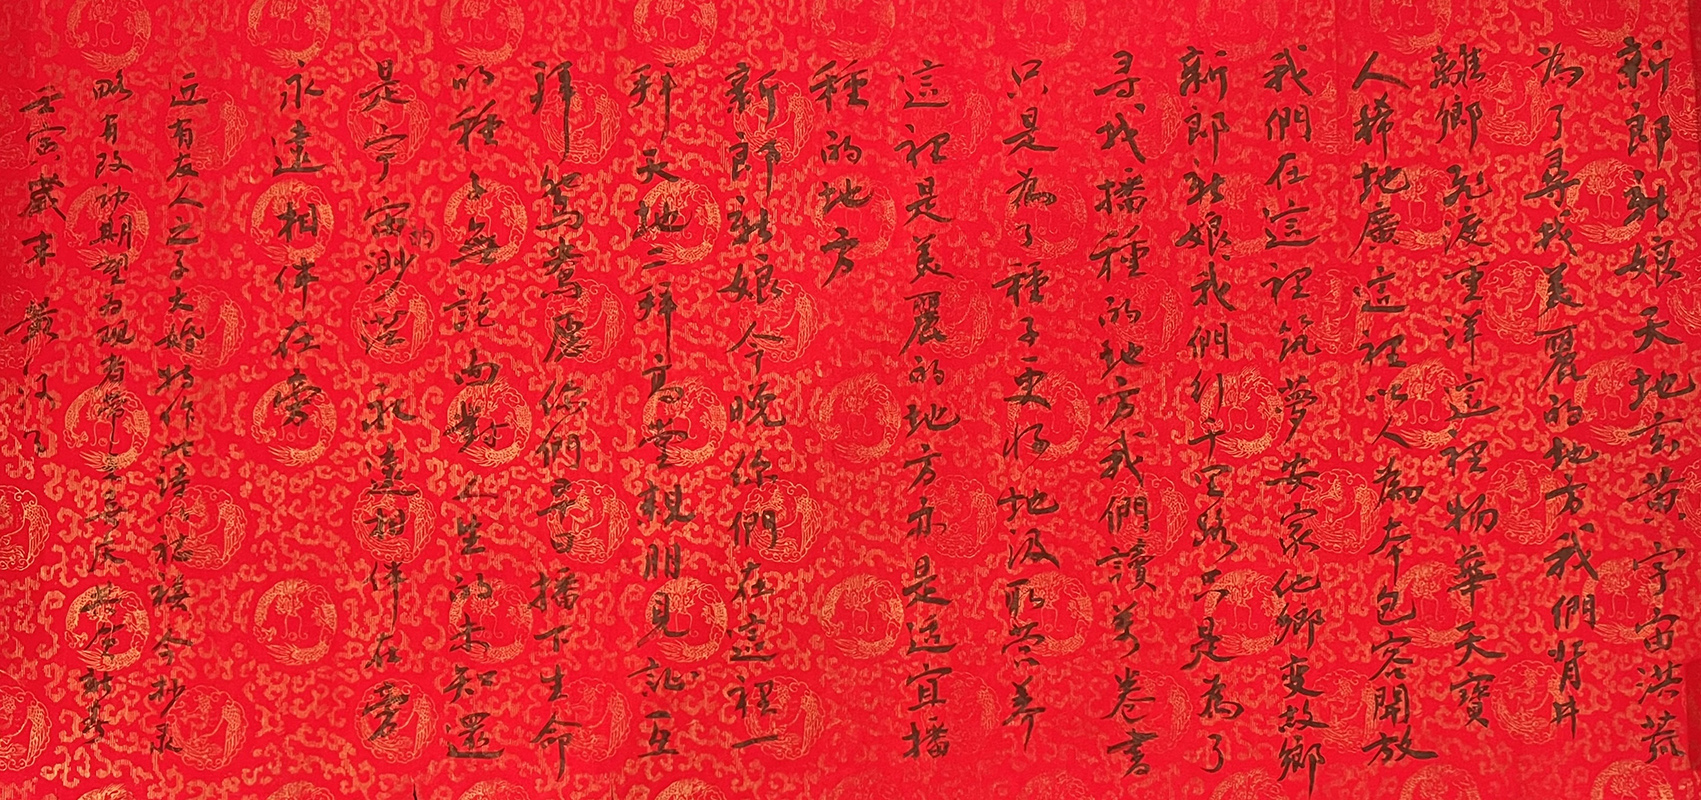 新郎新娘天地玄黃宇宙洪荒
為了尋找美麗的地方我們背井
離鄉飛渡重洋這裡物華天寶
人稀地廣這裡以人為本包容開放
我們在這裡筑夢安家他鄉變故鄉
新郎新娘我們行千里路只是為了
尋找播種的地方我們讀万卷書
只是為了種子更好地汲取營養
這裡是美麗的地方亦是适宜播
種的地方
新郎新娘今晚你們在這裡一
拜天地二拜高堂親朋見証互
拜鴛鴦愿你們早日播下生命
的種子無論面對上坐的未知還
是宇宙的渺茫永遠相伴在旁
永遠相伴在旁
近有友人之子大婚特作此語以誌禧今抄录
略有改动期望为观者帶之喜庆新春
壬寅歲末